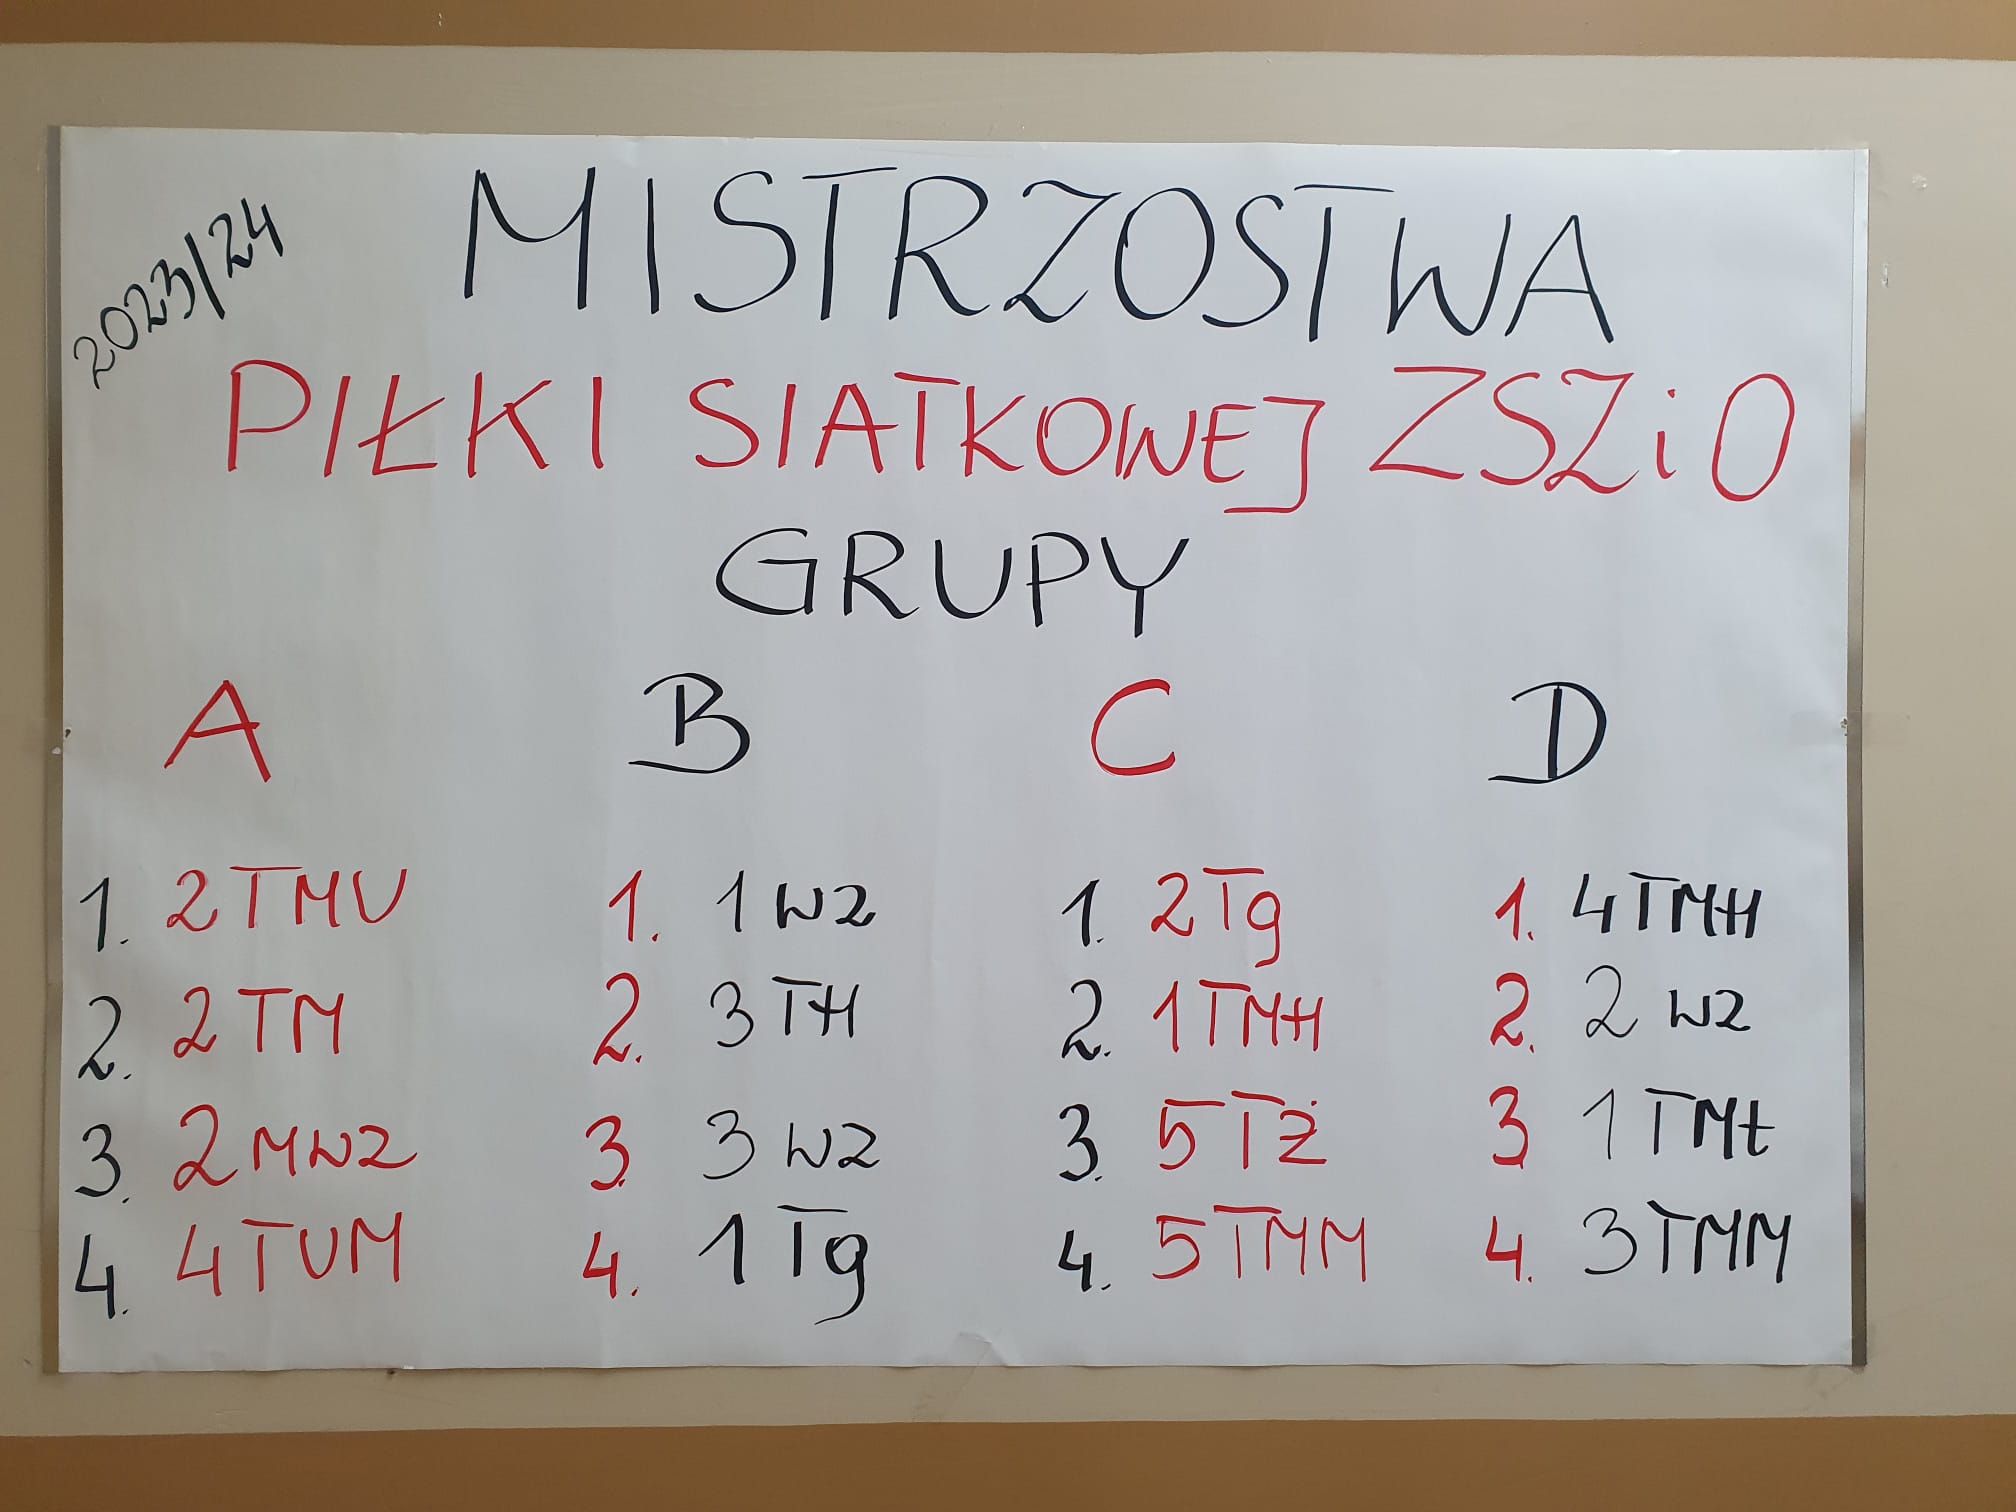 2023/24
MISTRZOSTWA
PIŁKI SIATKOWEJ ZSZiO
GRUPY
A B C D
1. 2TMU 1. 1 WZ 1. 2Tg 1. 4TMH
2. 2 TM 2. 3 TH 2. 1TMH 2. 2 WZ
3. 2 MWZ 3. 3 WZ 3. 5TŻ 3 1TMt
4. 4TUM 4. 1 Tg 4. 5TMM 4. 3TMM